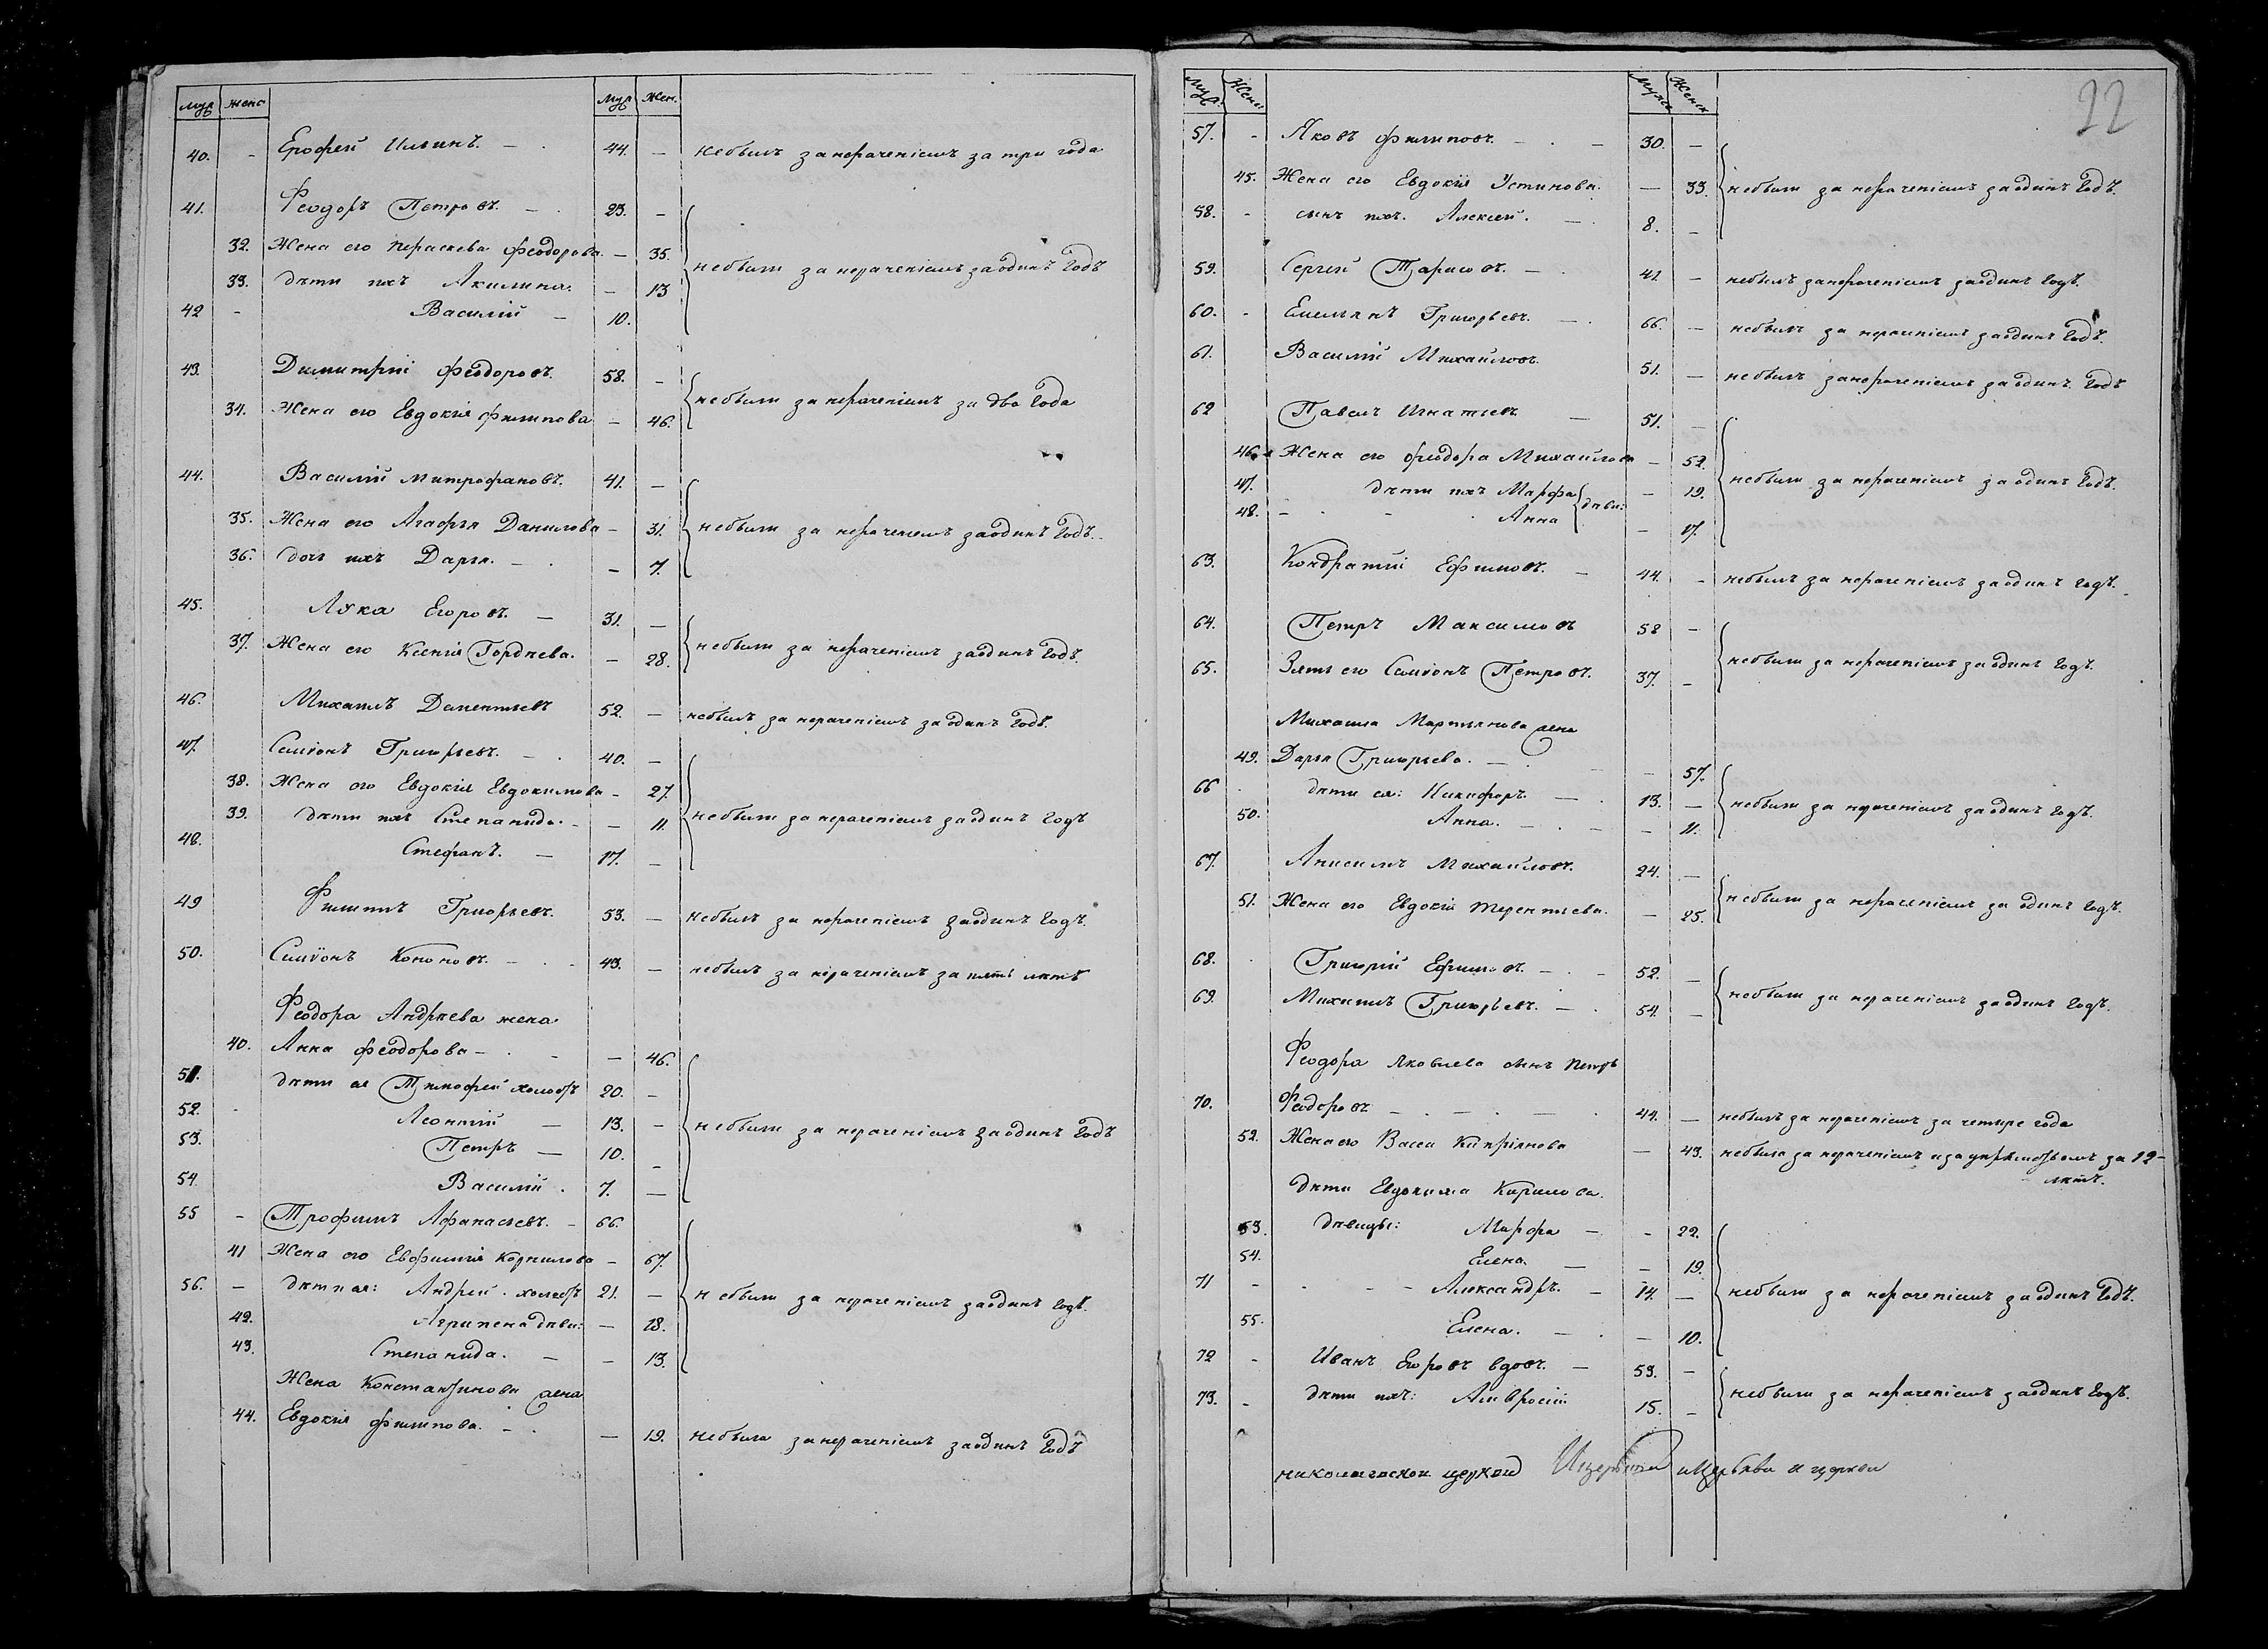 муж женс муж жен.
40. - Ерофей Ильинъ. - 44. - небылъ занераченіемъ за три года
41. Феодоръ Петровъ. - 23. -
32. Жена его Пераскева Феодорова. - 35.
небыли за нераченіемъ заодинъ годъ
33. дѣти ихъ Акилина. - 13
42 - Василій - 10.
43. Димитрій Феодоровъ. 58. -
небыли за нераченіемъ за два года
34. Жена его Евдокія Филипова - 46.
44. Василій Митрофановъ. 41. -
35. Жена его Агафья Данилова - 31. небыли за нераченіемъ заодинъ годъ.
36. дочь ихъ Дарья. - - 7.
45. Лука Егоровъ. - 31. -
37. Жена его Ксенія Гордѣева. - 28. небыли за нераченіемъ заодинъ годъ.
46. Михаилъ Дементьевъ 52. - небылъ за нераченіемъ заодинъ годъ.
47. Симѵонъ Григорьевъ. - 40. -
38. Жена его Евдокія Евдокимова - 27.
39. дѣти ихъ Степанида. - - 11. небыли за нераченіемъ заодинъ годъ
48. Стефанъ. - 17. -
49 Филиппъ Григорьевъ. 53. - небылъ за нераченіемъ заодинъ годъ.
50. Симѵонъ Кононовъ. - 43. - небылъ за нераченіемъ за пять лѣтъ
Феодора Андрѣева жена
40. Анна Феодорова - - - 46.
51. дѣти ея Тимофей холостъ 20. -
52. Леонтій - 13. - небыли за нераченіемъ заодинъ годъ
53. Петръ - 10. -
54. Василій. 7. -
55 - Трофимъ Афанасьевъ. - 66.
41 Жена его Евфимія Корнилова - 67.
56. - дѣти ея: Андрей. холостъ 21. - небыли за нераченіемъ заодинъ годъ.
42. Агрипена дѣви: - 18.
43. Степанида. - - 13.
Жена Константинова жена
44. Евдокія Филипова. - - 19. небыла занераченіемъ заодинъ годъ
22
муж. жены мужес женск
57. - Яковъ Филиповъ. - - 30. -
45. Жена его Евдокія Устинова. - 33. небыли за нераченіемъ заодинъ годъ.
58. - сынъ ихъ. Алексей. - 8. -
59. Сергей Тарасовъ. - 41. - небылъ занераченіемъ заодинъ годъ.
60. - Емельянъ Григорьевъ. - 66. - небылъ за нераченіемъ заодинъ годъ.
61. Василій Михайловъ. 51. - небылъ занераченіемъ заодинъ годъ
62 Павелъ Игнатьевъ. - 51. -
46. Жена его Феодора Михайлова - 52.
небыли за нераченіемъ за одинъ годъ.
47. дѣти ихъ Марфа дѣви: - 19.
48. - - Анна - 17.
63. Кондратій Ефимовъ. - 44. - небылъ за нераченіемъ заодинъ годъ.
64. Петръ Максимовъ 58 -
небыли за нераченіемъ заодинъ годъ.
65. Зять его Симѵонъ Петровъ. 37. -
Михаила Мартынова жена
49. Дарья Григорьева. - - 57.
66 дѣти ея: Никифоръ. - 13. - небыли за нераченіемъ заодинъ годъ.
50. Анна. - - - 11.
67. Анисимъ Михайловъ. 24. -
51. Жена его Евдокія Терентьева. - 25. небыли за нераченіемъ за одинъ годъ.
68. Григорій Ефимовъ. - - 52. -
небыли за нераченіемъ заодинъ годъ.
69. Михаилъ Григорьевъ. - 54. -
Феодора Яковлева сынъ Петръ
70. Феодоровъ - - - 44. - небылъ за нераченіемъ за четыре года
52. Жена его Васса Кипріянова - 43. небыла за нераченіемъ и за упрямствомъ за 12-
лѣтъ.
дѣти Евдокима Кирилова.
53. дѣвицы: Марфа - - 22.
54. Елена. - - 19.
71 - - - Александръ. - 14. - небыли за нераченіемъ заодинъ годъ.
55. Елена. - - 10.
72 - Иванъ Егоровъ вдовъ. - 53. -
небыли за нераченіемъ заодинъ годъ.
73. - дѣти ихъ: Амвросій 15. -
николаевской церкви и церкви